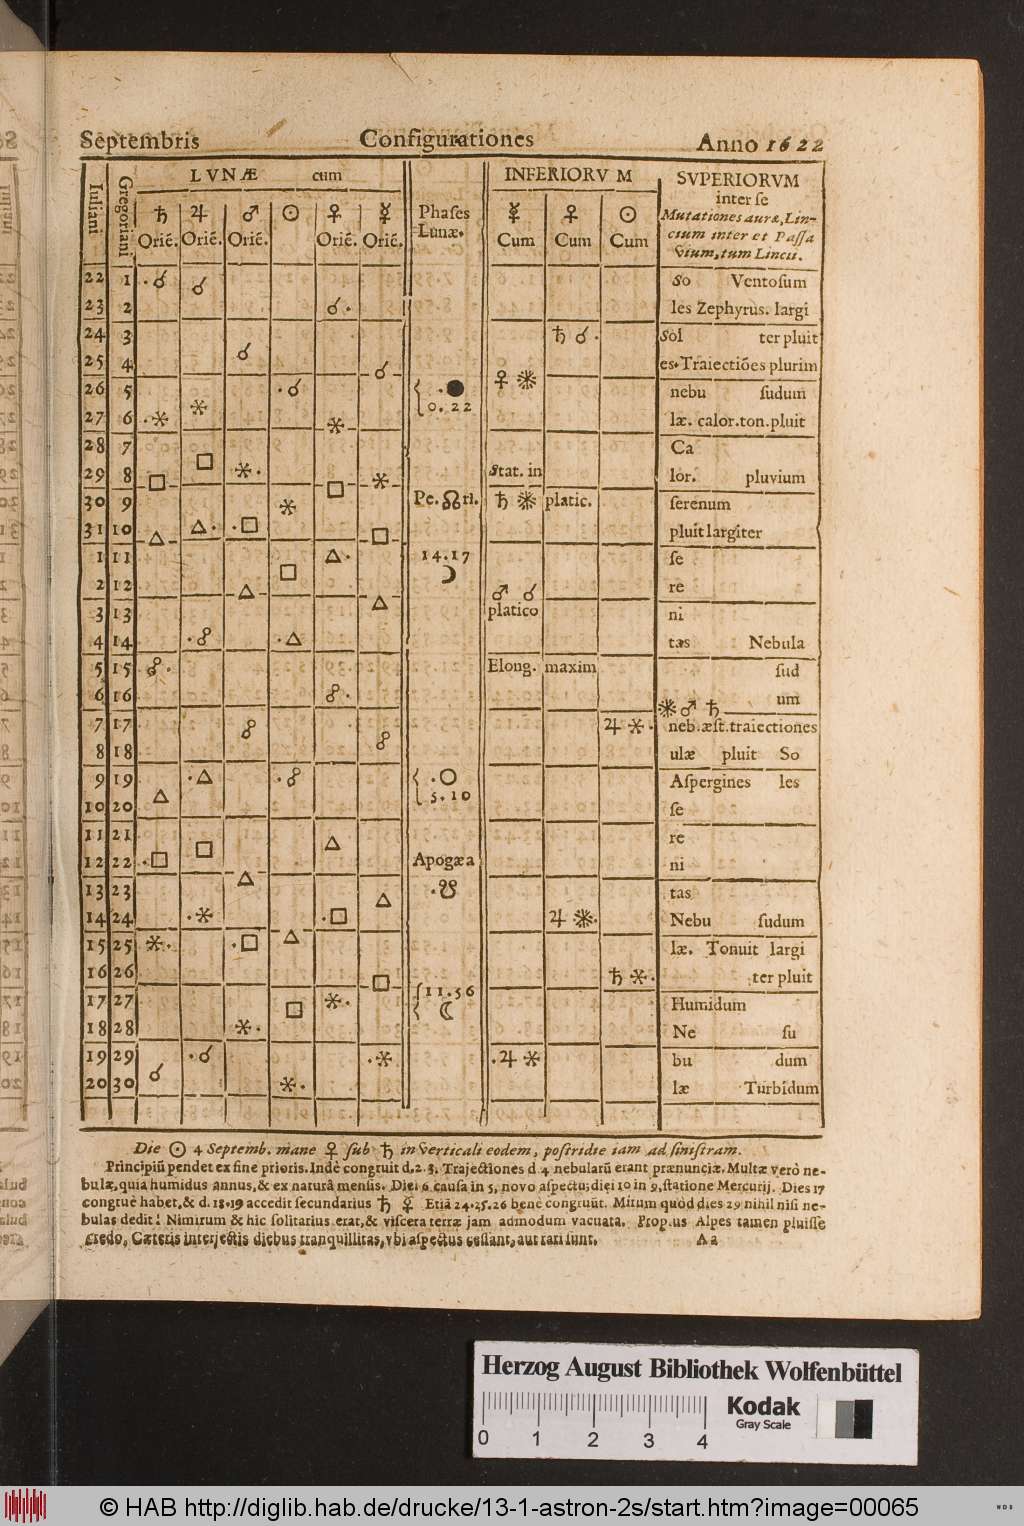 Septembris Configurationes Anno 1622
Iuliani Gregoriani LVNÆ cum Phaſes Lunæ. INFERIORVM SVPERIORVM
inter ſe
♄ ♃ ♂ ☉ ♀ ☿ ☿ ♀ ☉ Mutationes auræ, Lin-
Orié. Orié. Orié. Orié. Orié. Cum Cum Cum cium inter et Paſſa
vium, tum Lincii.
22 1 .☌ ☌ So Ventoſum
23 2 ☌. les Zephyrus. largi
24 3 ♄ ☌. Sol ter pluit
25 4 ☌ ☌ es. Traiectiões plurim
26 5 .☌ .● ♀ ⚹ nebu ſudum
27 6 .⚹ ⚹ ⚹ 0.22 læ. calor. ton. pluit
28 7 □ Ca
29 8 □ ⚹. □ ⚹ Stat. in lor. pluvium
30 9 ⚹ Pe. ☊ ri. ♄ ⚹ platic. ſerenum
31 10 △ △. .□ □ pluit largiter
1 11 △. 14.17 ſe
2 12 △ □ ☽ ♂ ☌ re
3 13 △ platico ni
4 14 .☍ .△ tas Nebula
5 15 ☍. Elong. maxim ſud
6 16 ☍. ⚹ ♂ ♄ um
7 17 ☍ ☍ ♃ ⚹. neb. æſt. traiectiones
8 18 ulæ pluit So
9 19 .△ .☍ .○ Aſpergines les
10 20 △ 5.10 ſe
11 21 □ △ re
12 22 .□ Apogæa ni
13 23 △ △ .☋ tas
14 24 .⚹ .□ ♃ ⚹. Nebu ſudum
15 25 ⚹. .□ △ læ. Tonuit largi
16 26 □ 11.56 ♄ ⚹. ter pluit
17 27 □ ⚹. ☾ Humidum
18 28 ⚹. Ne ſu
19 29 .☌ .⚹ .♃ ⚹ bu dum
20 30 ☌ ⚹. læ Turbidum
Die ☉ 4 Septemb. mane ♀ ſub ♄ in verticali eodem, poſtridie iam ad ſiniſtram.
Principiū pendet ex fine prioris. Indè congruit d, 2. 3. Trajectiones d. 4 nebularū erant prænunciæ. Multæ verò ne-
bulæ, quia humidus annus, & ex naturâ menſis. Diei 6 cauſa in 5, novo aſpectu; diei 10 in 9, ſtatione Mercurij. Dies 17
congruè habet, & d. 18.19 accedit ſecundarius ♄ ☿ Etiā 24.25.26 benè congruūt. Mirum quòd dies 29 nihil niſi ne-
bulas dedit! Nimirum & hic ſolitarius erat, & viſcera terræ jam admodum vacuata. Propius Alpes tamen pluiſſe
credo. Cæteris interjectis diebus tranquillitas, vbi aſpectus ceſſant, aut rari ſunt. Aa
Herzog August Bibliothek Wolfenbüttel
Kodak
Gray Scale
0 1 2 3 4
© HAB http://diglib.hab.de/drucke/13-1-astron-2s/start.htm?image=00065